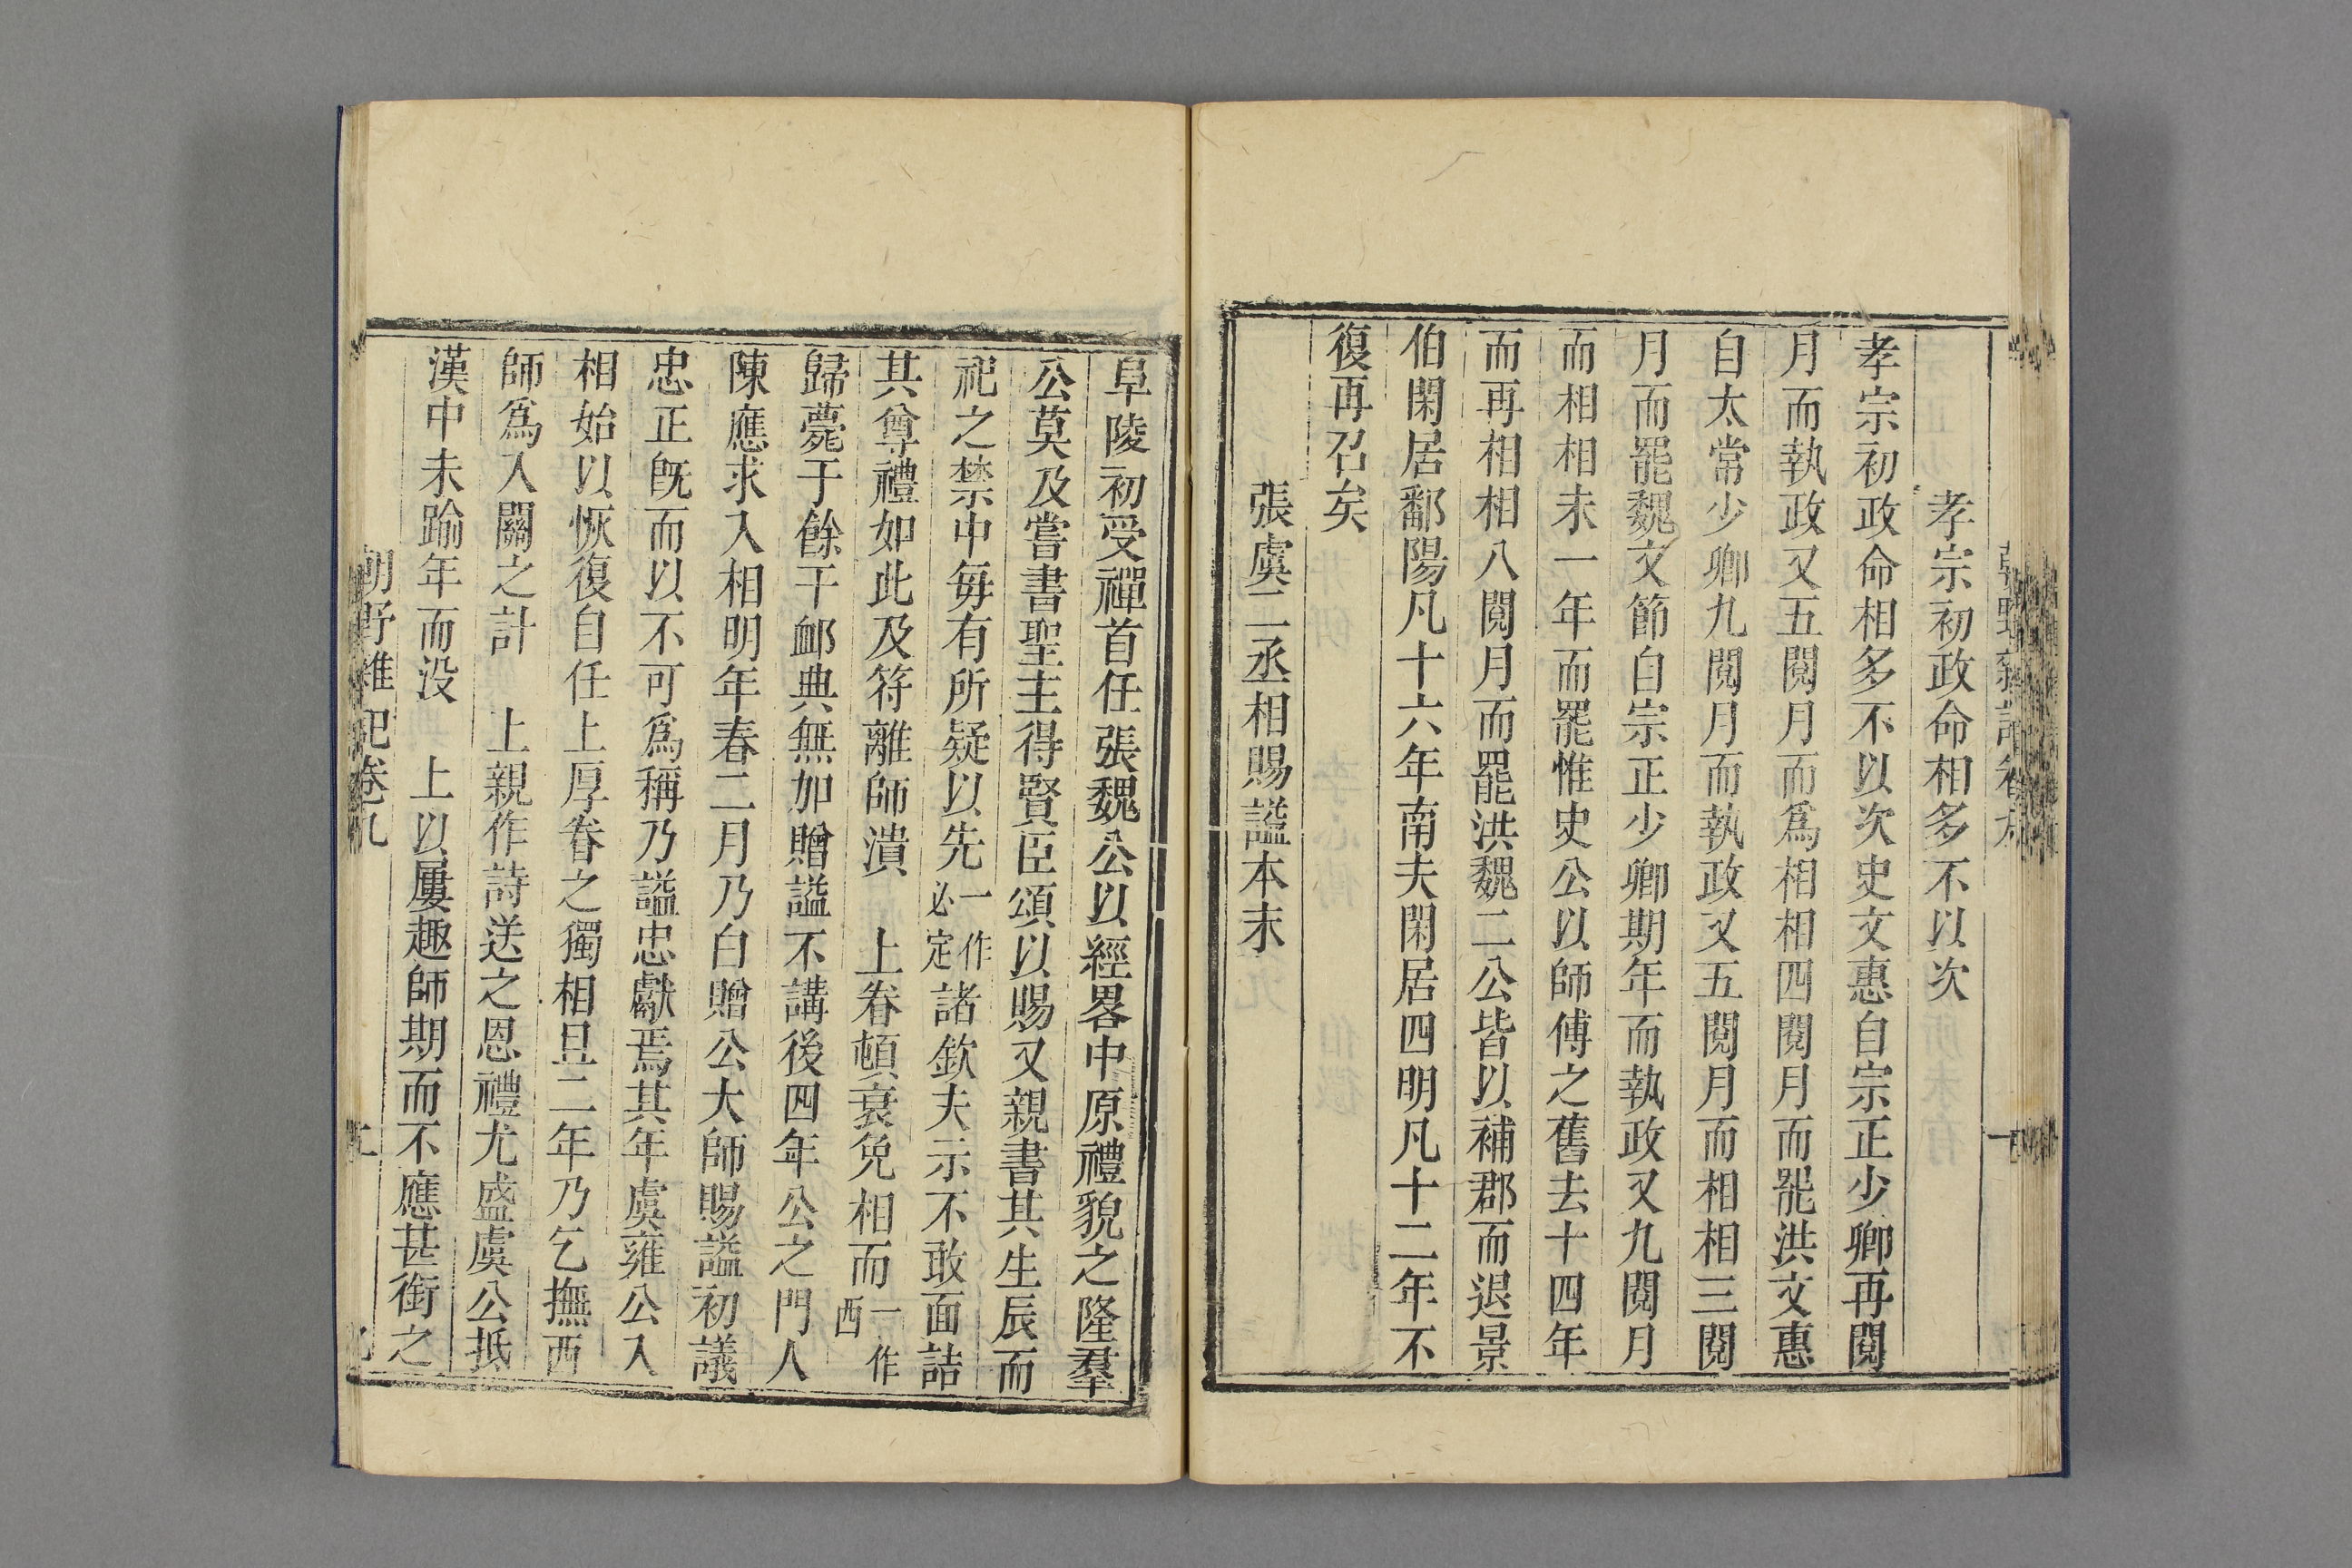 孝宗初政命相多不以次
孝宗初政命相多不以次史文惠自宗正少卿再閱
月而執政又五閱月而爲相相四閱月而罷洪文惠
自太常少卿九閱月而執政又五閱月而相相三閱
月而罷魏文節自宗正少卿期年而執政又九閱月
而相相未一年而罷惟史公以師傅之舊去十四年
而再相相八閱月而罷洪魏二公皆以補郡而退景
伯閑居鄱陽凡十六年南夫閑居四明凡十二年不
復再召矣
張虞二丞相賜諡本末
阜陵初受禪首任張魏公以經畧中原禮貌之隆羣
公莫及嘗書聖主得賢臣頌以賜又親書其生辰而
祀之禁中毎有所疑以先一作必定諸欽夫示不敢面詰
其尊禮如此及符離師潰　上眷頓衰免相而一作西
歸薨于餘干䘏典無加贈諡不講後四年公之門人
陳應求入相明年春二月乃白贈公大師賜諡初議
忠正旣而以不可爲稱乃諡忠獻焉其年虞雍公入
相始以恢復自任上厚眷之獨相且二年乃乞撫西
師爲入關之計　上親作詩送之恩禮尤盛虞公抵
漢中未踰年而没　上以屢趣師期而不應甚銜之
朝野雜記卷九